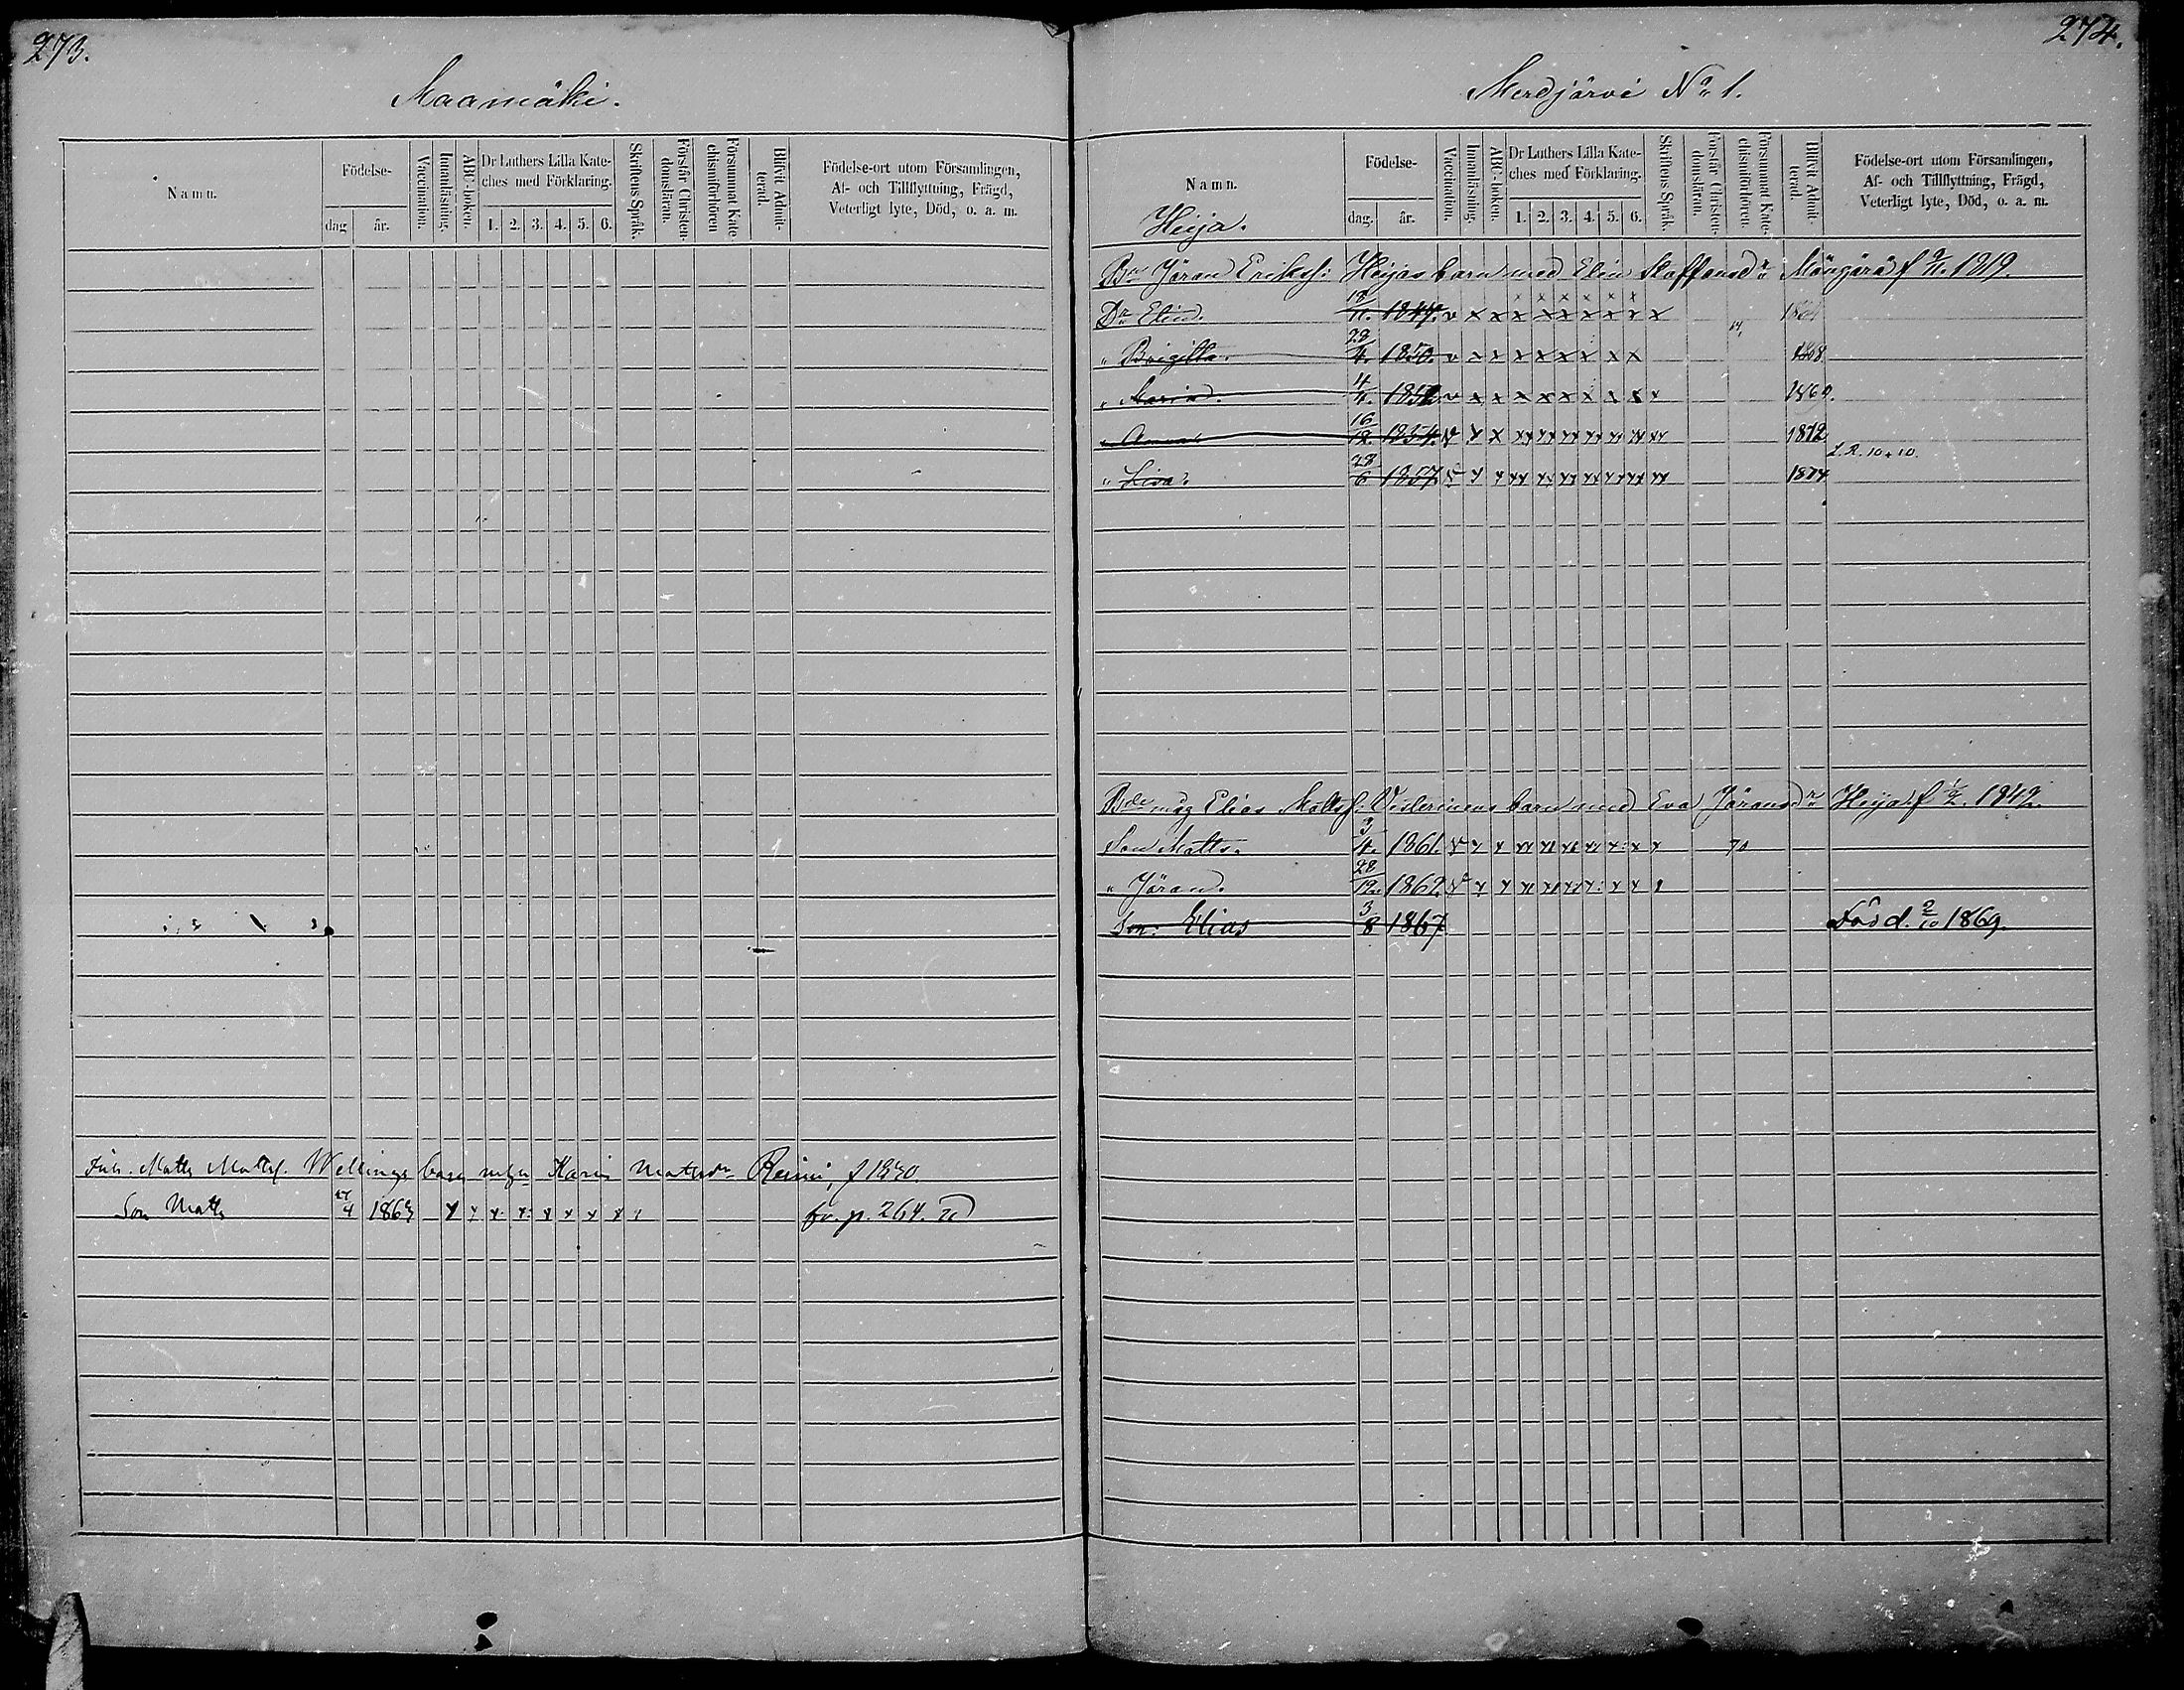 273.
Maamäki.
Namn.
Födelse-
dag
år.
Vaccination.
Innanläsning.
ABC-boken.
Dr Luthers Lilla Kate-
ches med Förklaring.
1. 2. 3. 4. 5. 6.
Skriftens Språk.
Förstår Christen-
domsläran.
Försummat Kate-
chismiförhören
Blifvit Admit-
terad.
Födelse-ort utom Församlingen,
Af- och Tillflyttning, Frägd,
Veterligt lyte, Död, o. a. m.
Matts Mattsf. Wellings barn m Karin Mattsdr Reini, f 1830.
Son Matts 4 1863 x x x x x x x x fr. p. 264.
274.
Merdjärvi No 1.
Namn.
Heija.
Födelse-
dag.
år.
Vaccination.
Innanläsning.
ABC-boken.
Dr Luthers Lilla Kate-
ches med Förklaring.
1. 2. 3. 4. 5. 6.
Skriftens Språk.
Förstår Christen-
domsläran.
Försummat Kate-
chismiförhören.
Blifvit Admit-
terad.
Födelse-ort utom Församlingen,
Af- och Tillflyttning, Frägd,
Veterligt lyte, Död, o. a. m.
Bn Jöran Eriksf: Heijas barn med Elin Staffansdr f 1819.
Dr Elin. 18/11. 1847. v x x x x x x x x x
" Brigitta. 28/4. 1850. v x x x x x x x x 1868
" Maria. 4/4. 1852 v x x x x x x x x x 1869.
" Anna. 16/12. 1854. v x x xx xx xx xx xx xx xx 1872
L.R. 10 + 10.
" Lisa. 28/6 1857. v x x xx xx xx xx xx xx xx 1874
Bde måg Elias Mattsf: barn med Eva Jöransdr Heija f 1842.
Son Matts. 3/4. 1861. v x x xx xx xx xx x x x 70
" Jöran. 28/12. 1862. v x x
Son: Elias 3/8 1867. Död d. 2/10 1869.